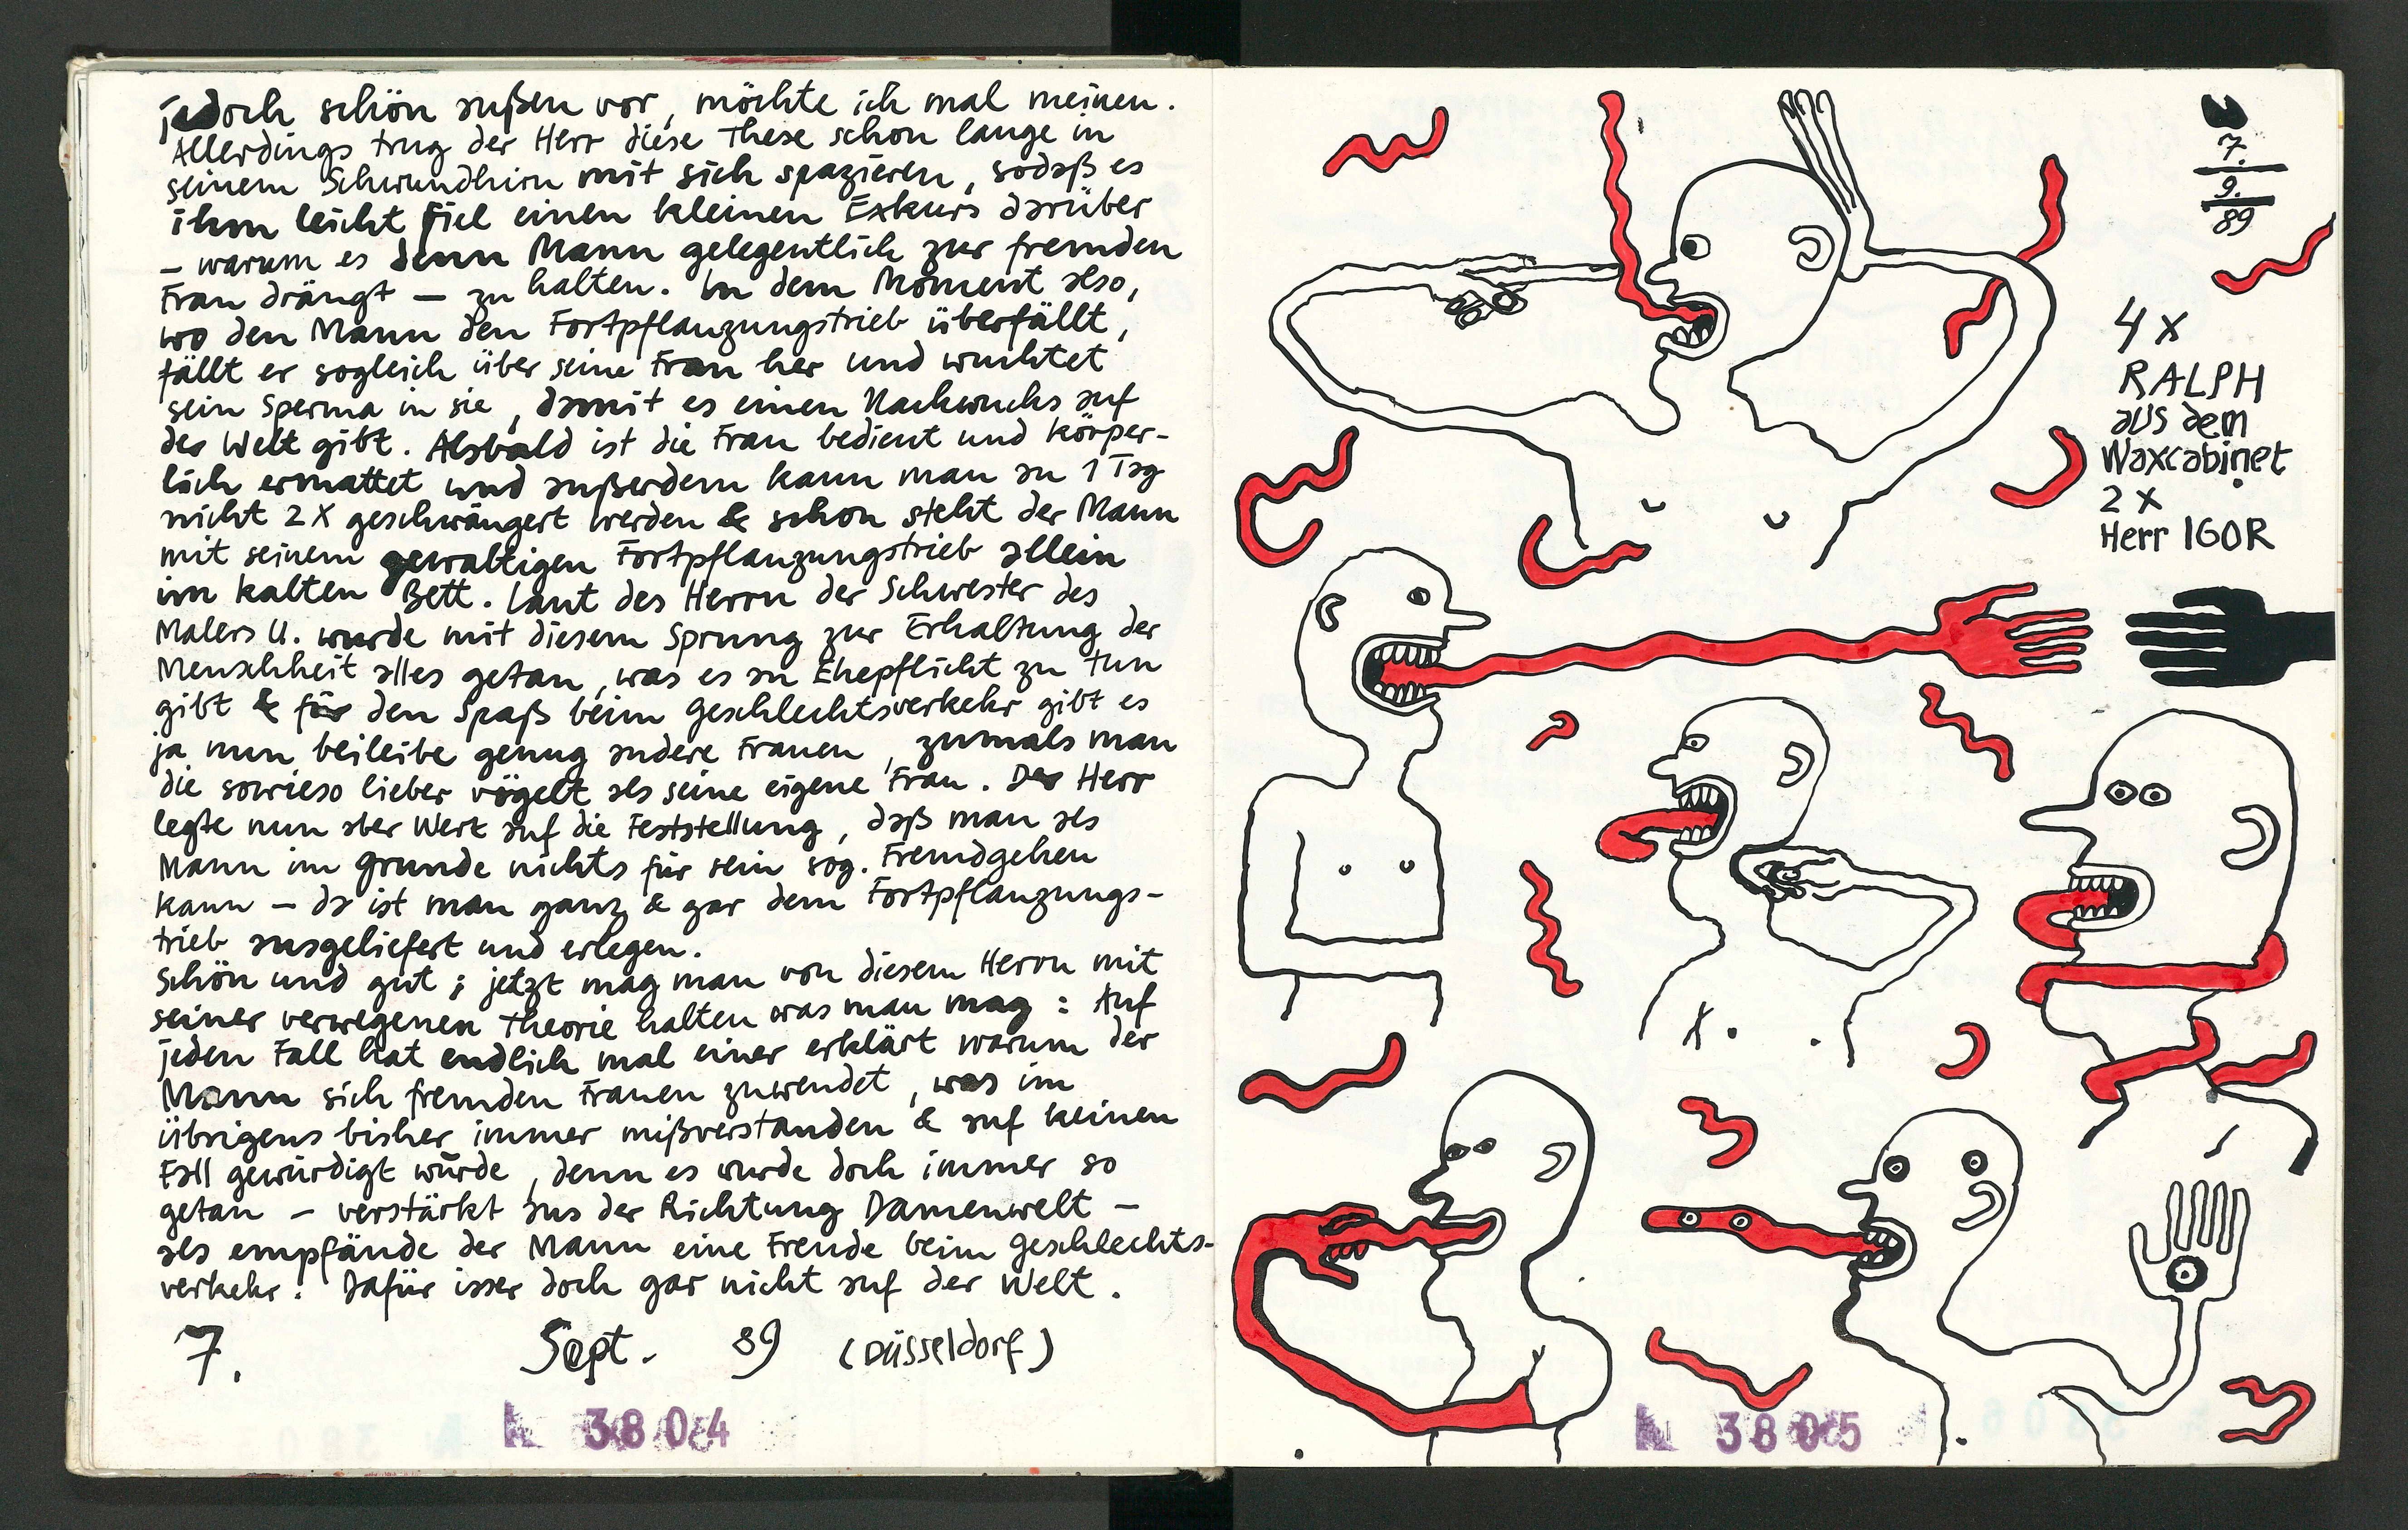 jedoch schön außen vor, möchte ich mal meinen.
Allerdings trug der Herr diese These schon lange in
seinem Schwundhirn mit sich spazieren, sodaß es
ihm leicht fiel einen kleinen Exkurs darüber
– warum es denn Mann gelegentlich zur fremden
Frau drängt – zu halten. In dem Moment also,
wo den Mann den Fortpflanzungstrieb überfällt,
fällt er sogleich über seine Frau her und wuchtet
sein Sperma in sie, damit es einen Nachwuchs auf
der Welt gibt. Alsbald ist die Frau bedient und körper-
lich ermattet und außerdem kann man an 1 Tag
nicht 2 X geschwängert werden & schon steht der Mann
mit seinem gewaltigen Fortpflanzungstrieb allein
im kalten Bett. Laut des Herrn der Schwester des
Malers U. wurde mit diesem Sprung zur Erhaltung der
Menschheit alles getan, was es an Ehepflicht zu tun
gibt & für den Spaß beim Geschlechtsverkehr gibt es
ja nun beileibe genug andere Frauen, zumals man
die sowieso lieber vögelt als seine eigene Frau. Der Herr
legte nun aber Wert auf die Feststellung, daß man als
Mann im Grunde nichts für sein sog. Fremdgehen
kann – da ist man ganz & gar dem Fortpflanzungs-
trieb ausgeliefert und erlegen.
Schön und gut; jetzt mag man von diesem Herrn mit
seiner verwegenen Theorie halten was man mag: Auf
jeden Fall hat endlich mal einer erklärt warum der
Mann sich fremden Frauen zuwendet, was im
übrigens bisher immer mißverstanden & auf keinen
Fall gewürdigt wurde, denn es wurde doch immer so
getan – verstärkt aus der Richtung Damenwelt –
als empfände der Mann eine Freude beim Geschlechts-
verkehr! Dafür isser doch gar nicht auf der Welt.
7. Sept. 89 (Düsseldorf)
3804
7.
9.
89
4 x
RALPH
aus dem
Waxcabinet
2 x
Herr IGOR
3805